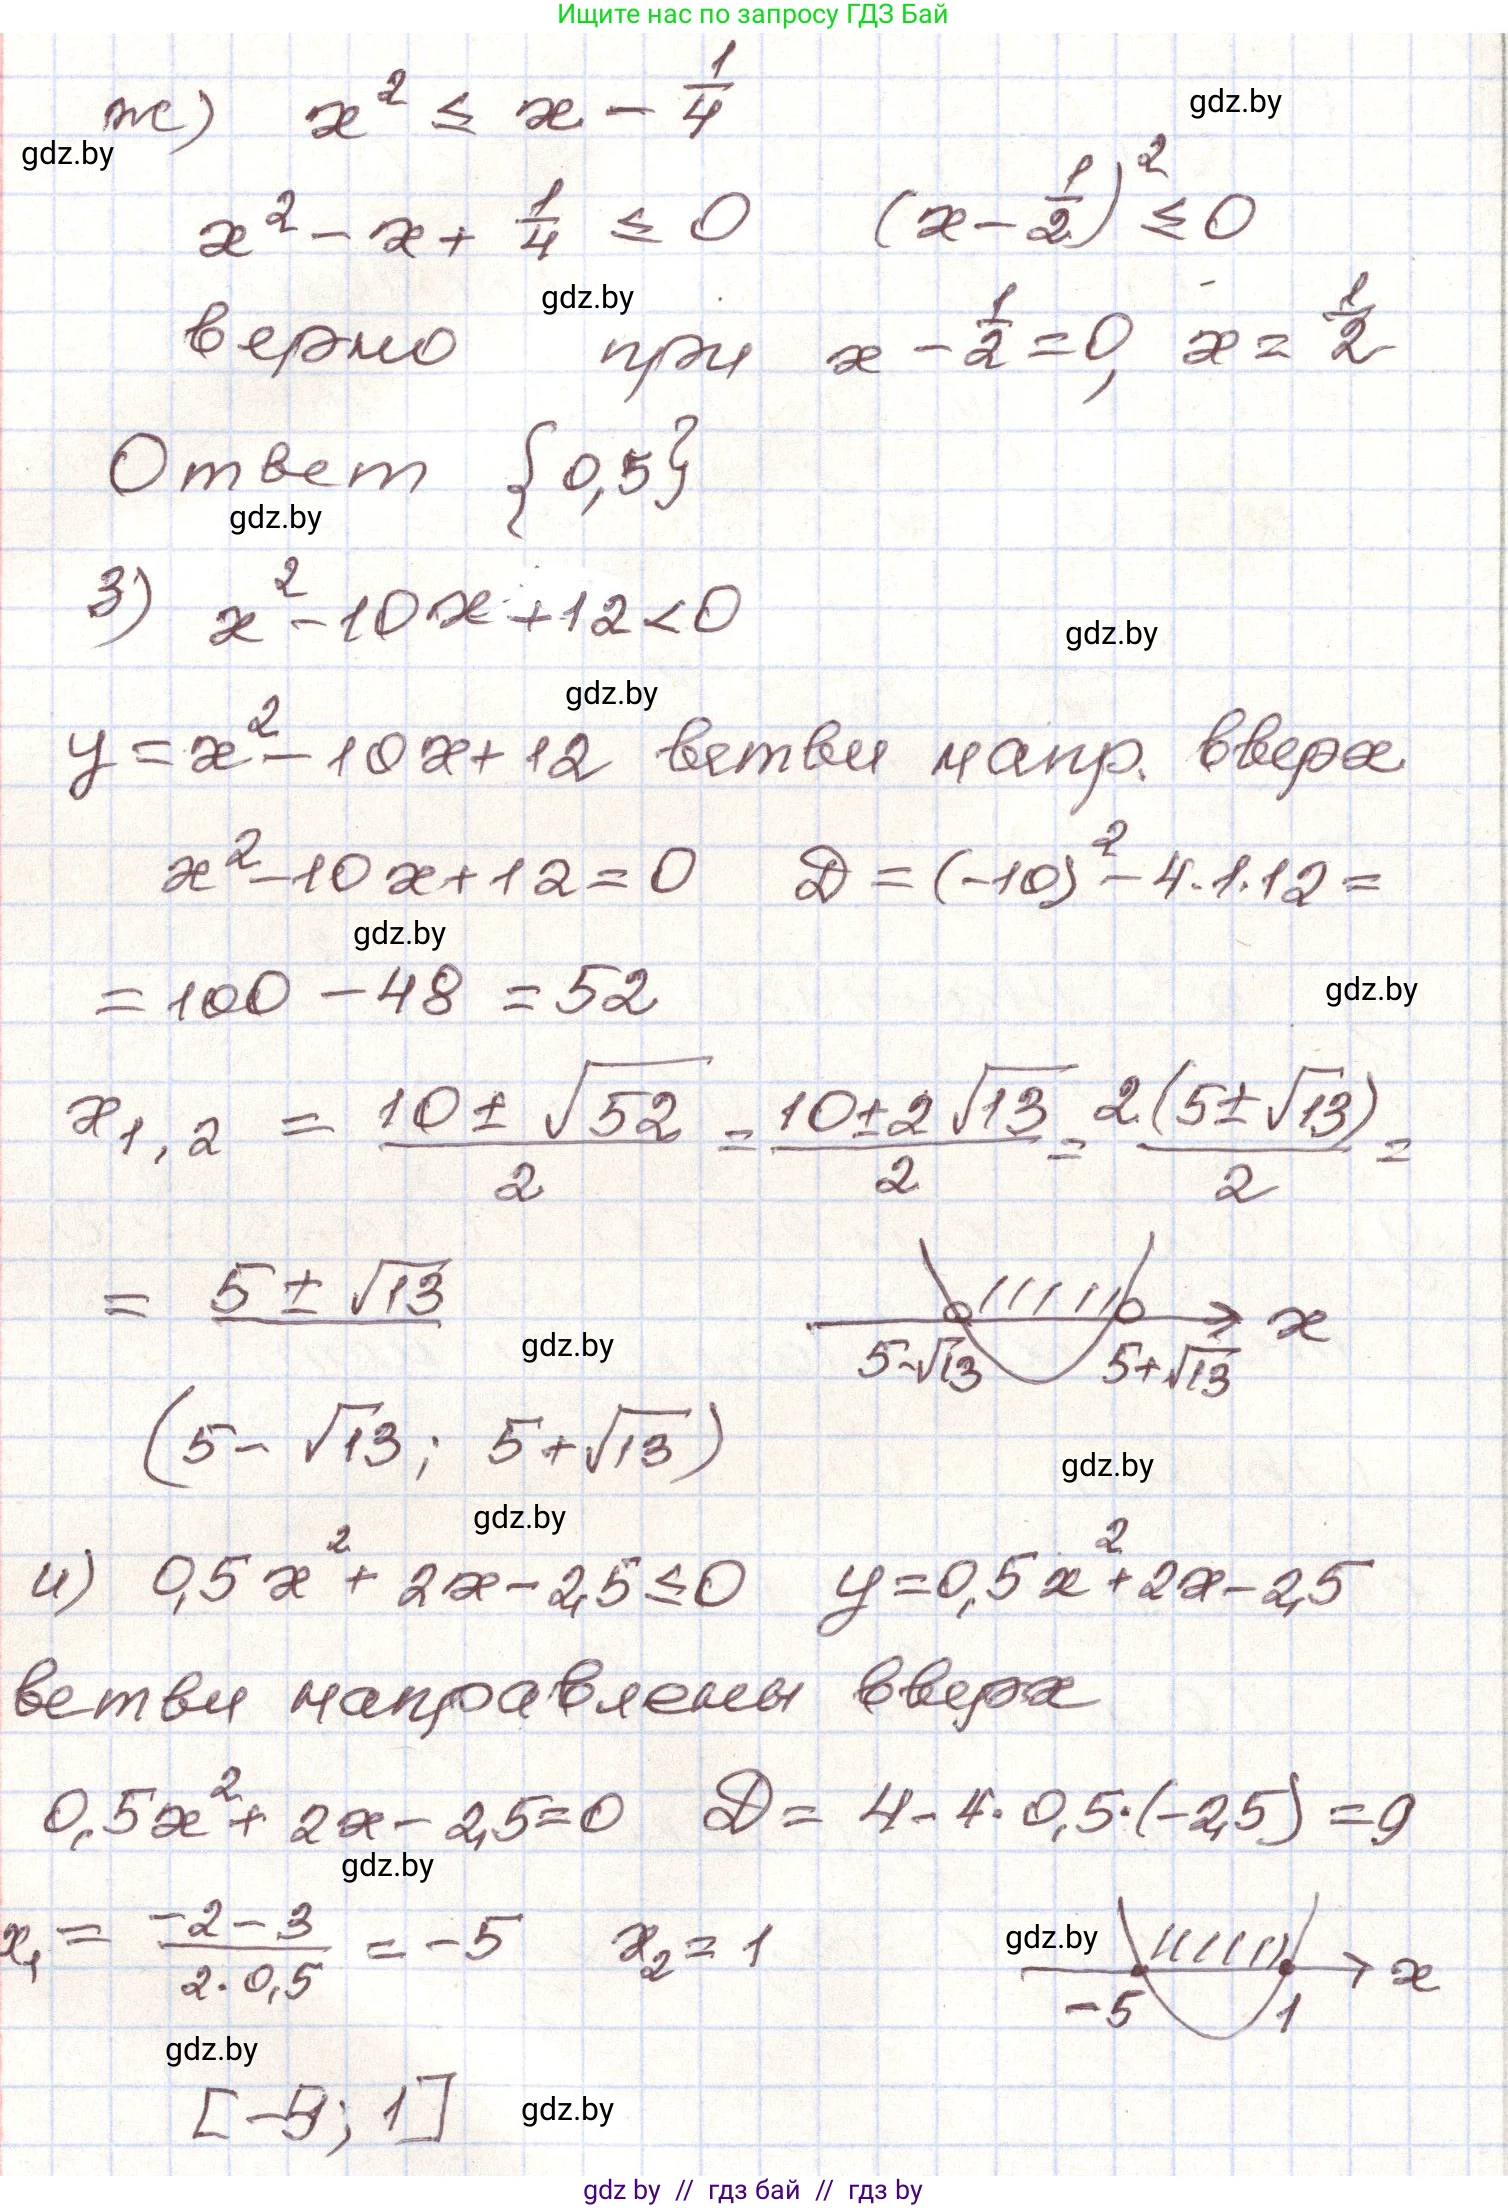 Ищите нас по запросу ГДЗ Бай
ж) x² ≤ x - 1/4
gdz.by
gdz.by
x² - x + 1/4 ≤ 0 (x - 1/2)² ≤ 0
gdz.by
верно при x - 1/2 = 0, x = 1/2
Ответ {0,5}
gdz.by
з) x² - 10x + 12 < 0
gdz.by
gdz.by
y = x² - 10x + 12 ветви напр. вверх
x² - 10x + 12 = 0 D = (-10)² - 4·1·12 =
gdz.by
= 100 - 48 = 52
gdz.by
x1,2 = (10 ± √52)/2 = (10 ± 2√13)/2 = 2(5 ± √13)/2 =
= 5 ± √13
x
gdz.by
5-√13 5+√13
(5 - √13; 5 + √13)
gdz.by
gdz.by
и) 0,5x² + 2x - 2,5 ≤ 0 y = 0,5x² + 2x - 2,5
ветви направлены вверх
0,5x² + 2x - 2,5 = 0 D = 4 - 4·0,5·(-2,5) = 9
gdz.by
x1 = (-2 - 3)/(2·0,5) = -5 x2 = 1
gdz.by
x
-5 1
gdz.by
[-5; 1]
gdz.by
gdz.by // гдз бай // гдз by